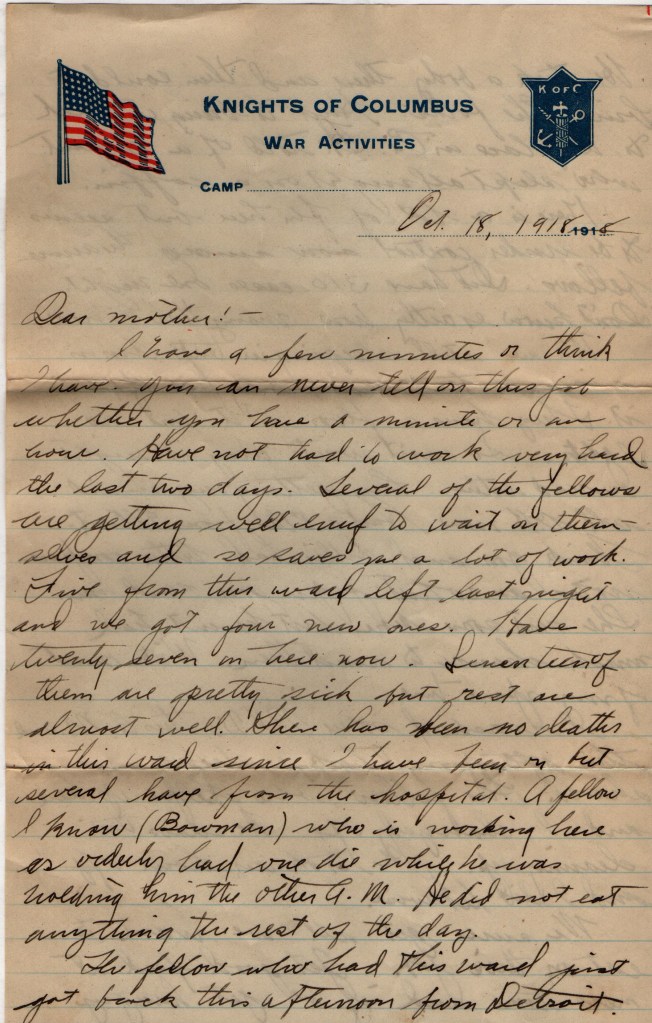 K OF C
KNIGHTS OF COLUMBUS
WAR ACTIVITIES
CAMP
Oct. 18, 1918 1918
Dear mother:-
I have a few minutes or think
I have. You can never tell on this job
whether you have a minute or an
hour. Have not had to work very hard
the last two days. Several of the fellows
are getting well enuf to wait on them-
selves and so saves me a lot of work.
Five from this ward left last night
and we got four new ones. Have
twenty seven in here now. Seventeen of
them are pretty sick but rest are
almost well. There has been no deaths
in this ward since I have been on but
several have from the hospital. A fellow
I know (Bowman) who is working here
as orderly had one die while he was
holding him the other A.M. He did not eat
anything the rest of the day.
The fellow who had this ward just
got back this afternoon from Detroit.